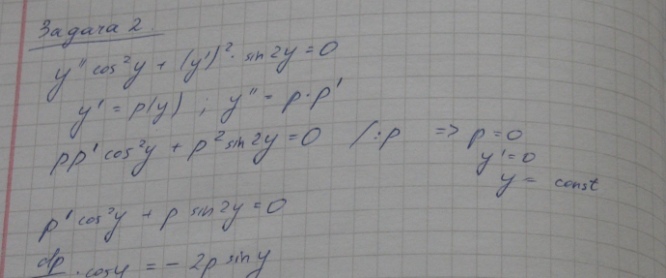 Задача 2
y'' cos²y + (y')² · sin2y = 0
y' = p(y) ; y'' = p · p'
pp' cos²y + p² sin2y = 0 /:p => p = 0
y' = 0
y = const
p' cos²y + p sin2y = 0
dp · cosy = - 2p siny